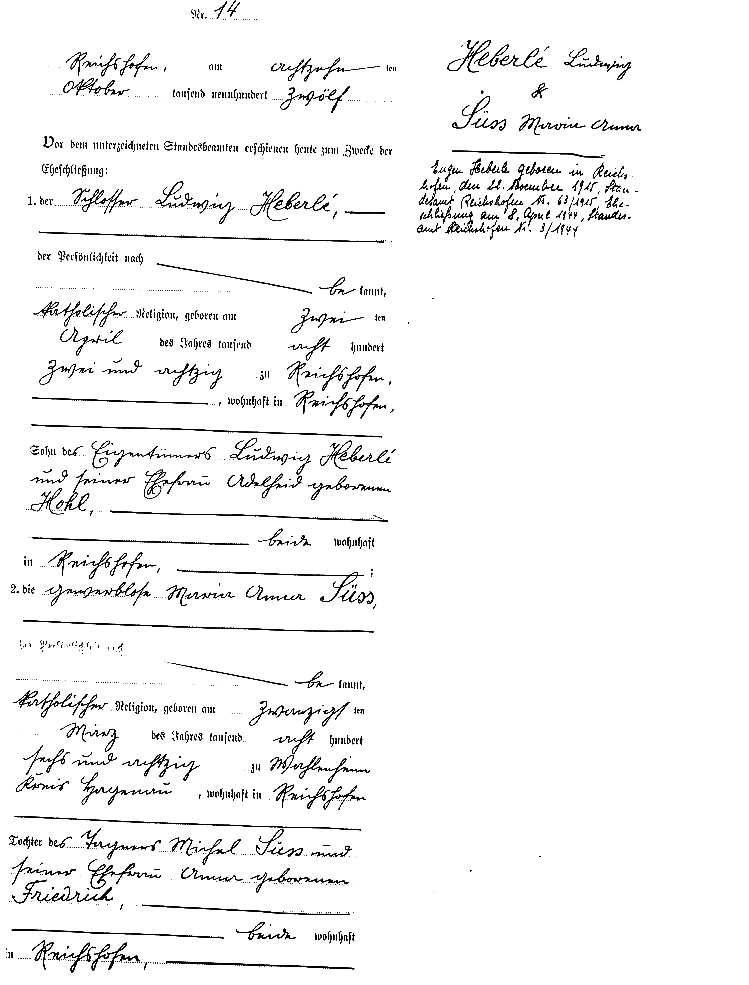 Nr. 14
Reichshofen, am achtzehn ten
Oktober tausend neunhundert zwölf
Vor dem unterzeichneten Standesbeamten erschienen heute zum Zwecke der
Eheschließung:
1. der Schlosser Ludwig Heberlé,
der Persönlichkeit nach
be kannt,
katholischer Religion, geboren am zwei ten
April des Jahres tausend acht hundert
zwei und achtzig zu Reichshofen,
, wohnhaft in Reichshofen,
Sohn des Eigentümers Ludwig Heberlé
und seiner Ehefrau Adelheid geborenen
Hohl,
beide wohnhaft
in Reichshofen, ;
2. die gewerblose Maria Anna Süss,
der Persönlichkeit nach
be kannt,
katholischer Religion, geboren am zwanzigst ten
März des Jahres tausend acht hundert
sechs und achtzig zu Wahlenheim
Kreis Hagenau , wohnhaft in Reichshofen
Tochter des Tagners Michel Süss und
seiner Ehefrau Anna geborenen
Friedrich,
beide wohnhaft
in Reichshofen,
Heberlé Ludwig
&
Süss Maria Anna
Eugen Heberle geboren in Reichs-
hofen, den 22. November 1915, Stan-
desamt Reichshofen N. 63/1915 Ehe-
schließung am 8. April 1944, Standes-
amt Reichshofen N. 3/1944